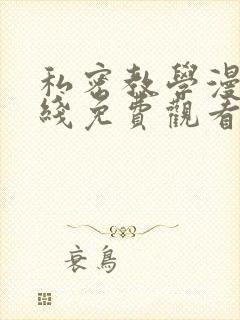 私密教學漫
綫免費觀看
衰鳥